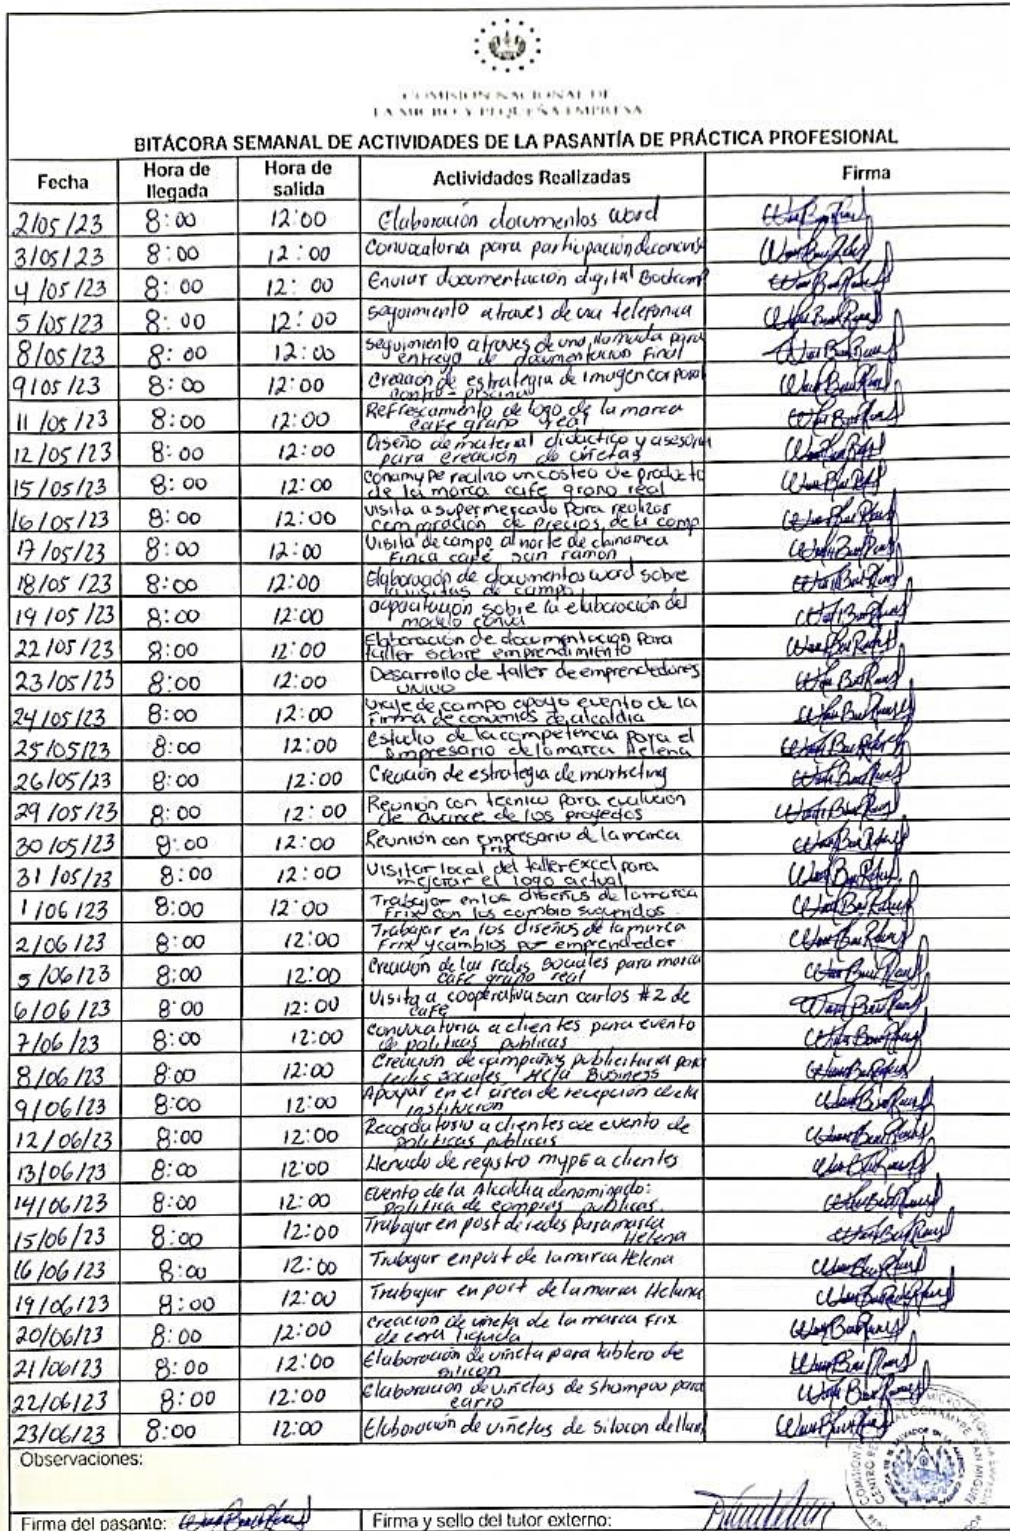 COMISIÓN NACIONAL DE
LA MICRO Y PEQUEÑA EMPRESA
BITÁCORA SEMANAL DE ACTIVIDADES DE LA PASANTÍA DE PRÁCTICA PROFESIONAL
Fecha Hora de llegada Hora de salida Actividades Realizadas Firma
2/05/23 8:00 12:00 Elaboración documentos word
3/05/23 8:00 12:00 Convocatoria para participación de concurs
4/05/23 8:00 12:00 Enviar documentación digital Bootcamp
5/05/23 8:00 12:00 seguimiento atraves de via telefonica
8/05/23 8:00 12:00 seguimiento atraves de una llamada para
entrega de documentacion Final
9/05/23 8:00 12:00 Creación de estrategia de imagen corporal
11/05/23 8:00 12:00 Refrescamiento de logo de la marca
cafe grano real
12/05/23 8:00 12:00 Diseño de material didactico y asesoria
para creación de viñetas
15/05/23 8:00 12:00 Conamype realizo un costeo de producto
de la marca cafe grano real
16/05/23 8:00 12:00 visita a supermercado para realizar
comparación de precios de la comp
17/05/23 8:00 12:00 Visita de campo al norte de chinameca
Finca café san ramon
18/05/23 8:00 12:00 Elaboración de documentos word sobre
la visitas de campo
19/05/23 8:00 12:00 capacitación sobre la elaboración del
modelo canva
22/05/23 8:00 12:00 Elaboración de documentación para
taller sobre emprendimiento
23/05/23 8:00 12:00 Desarrollo de taller de emprendedores
UNIVO
24/05/23 8:00 12:00 viaje de campo apoyo evento de la
Firma de convenios de alcaldia
25/05/23 8:00 12:00 Estudio de la competencia para el
empresario de la marca Helena
26/05/23 8:00 12:00 Creación de estrategia de marketing
29/05/23 8:00 12:00 Reunión con tecnico para evalución
de avance de los proyectos
30/05/23 8:00 12:00 Reunión con empresario de la marca
Frix
31/05/23 8:00 12:00 Visitar local del taller Excel para
mejorar el logo actual
1/06/23 8:00 12:00 Trabajar en los diseños de la marca
Frix con los cambio sugeridos
2/06/23 8:00 12:00 Trabajar en los diseños de la marca
Frix y cambios por emprendedor
5/06/23 8:00 12:00 Creación de las redes sociales para marca
cafe grano real
6/06/23 8:00 12:00 Visita a cooperativa san carlos #2 de
cafe
7/06/23 8:00 12:00 convocatoria a clientes para evento
de politicas publicas
8/06/23 8:00 12:00 Creación de campañas publicitarias para
redes sociales Meta Business
9/06/23 8:00 12:00 Apoyar en el area de recepción de la
institución
12/06/23 8:00 12:00 Recordatorio a clientes de evento de
politicas publicas
13/06/23 8:00 12:00 Llenado de registro mypE a clientes
14/06/23 8:00 12:00 Evento de la Alcaldia denominado:
politica de compras publicas.
15/06/23 8:00 12:00 Trabajar en post de redes para marca
Helena
16/06/23 8:00 12:00 Trabajar en post de la marca Helena
19/06/23 8:00 12:00 Trabajar en post de la marca Helena
20/06/23 8:00 12:00 creación de viñeta de la marca Frix
de cera liquida
21/06/23 8:00 12:00 Elaboración de viñeta para tablero de
silicon
22/06/23 8:00 12:00 Elaboración de viñetas de shampoo para
carro
23/06/23 8:00 12:00 Elaboración de viñetas de silocon de llan
Observaciones:
Firma del pasante:
Firma y sello del tutor externo: